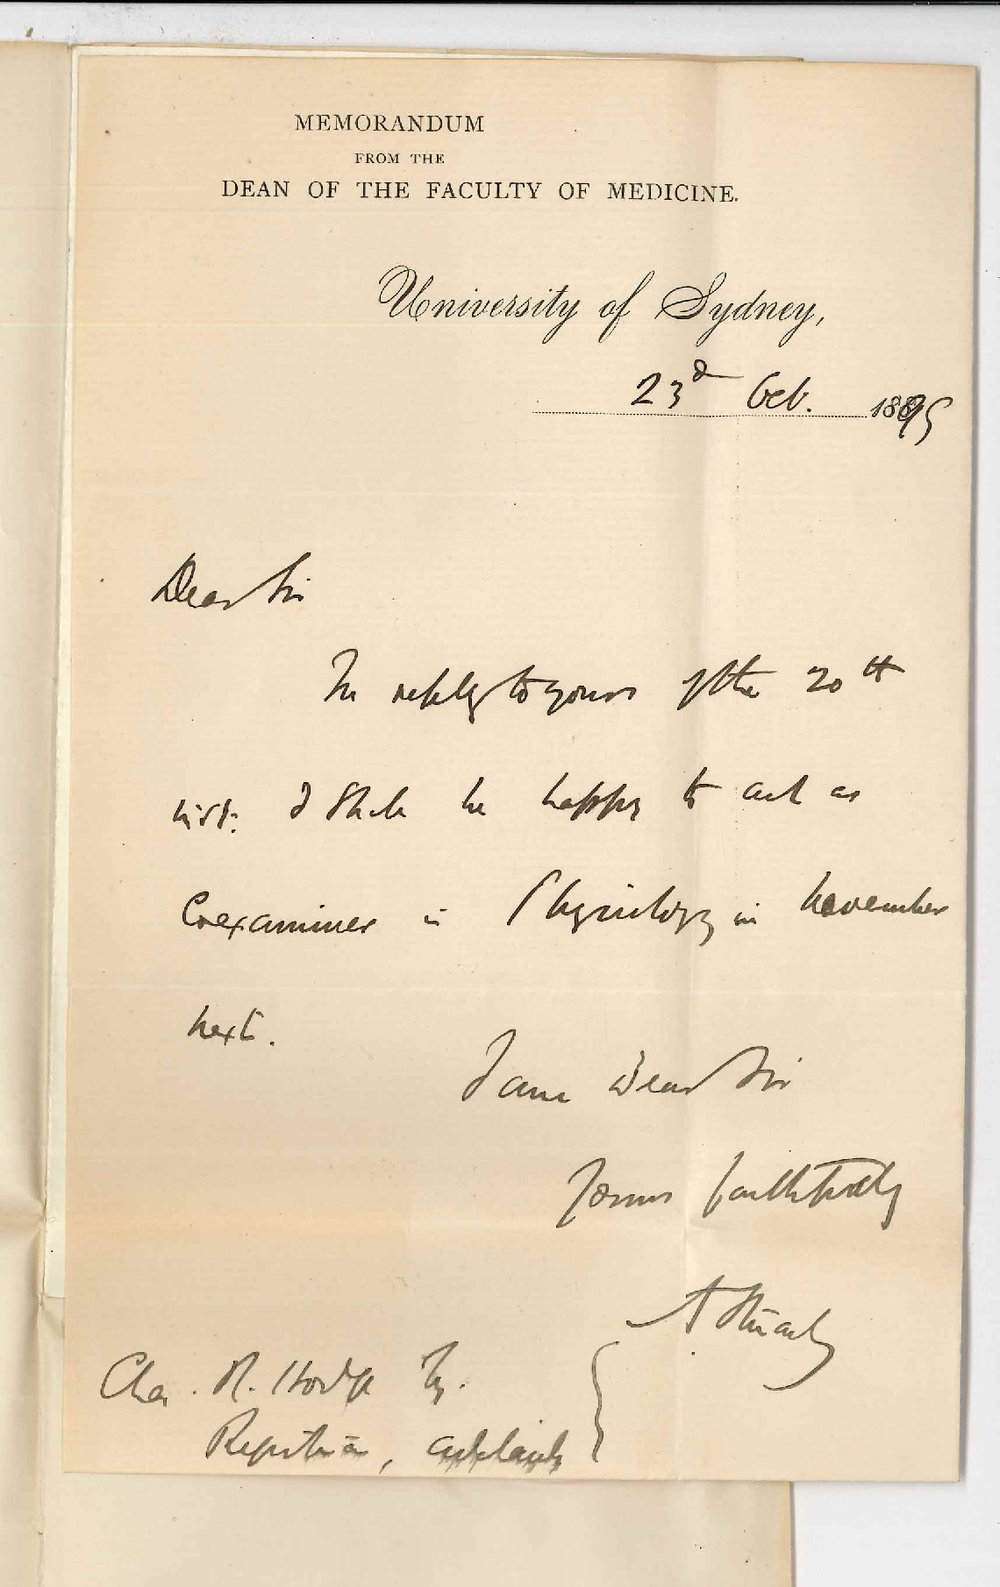 MEMORANDUM
FROM THE
DEAN OF THE FACULTY OF MEDICINE.
University of Sydney,
23d Feb. 1895
Dear Sir
In reply to yours of the 20th
inst. I shall be happy to act as
Coexaminer in Physiology in November
next.
I am Dear Sir
Yours faithfully
A Stuart
Chas. R. Hodge Esq.
Registrar, Adelaide